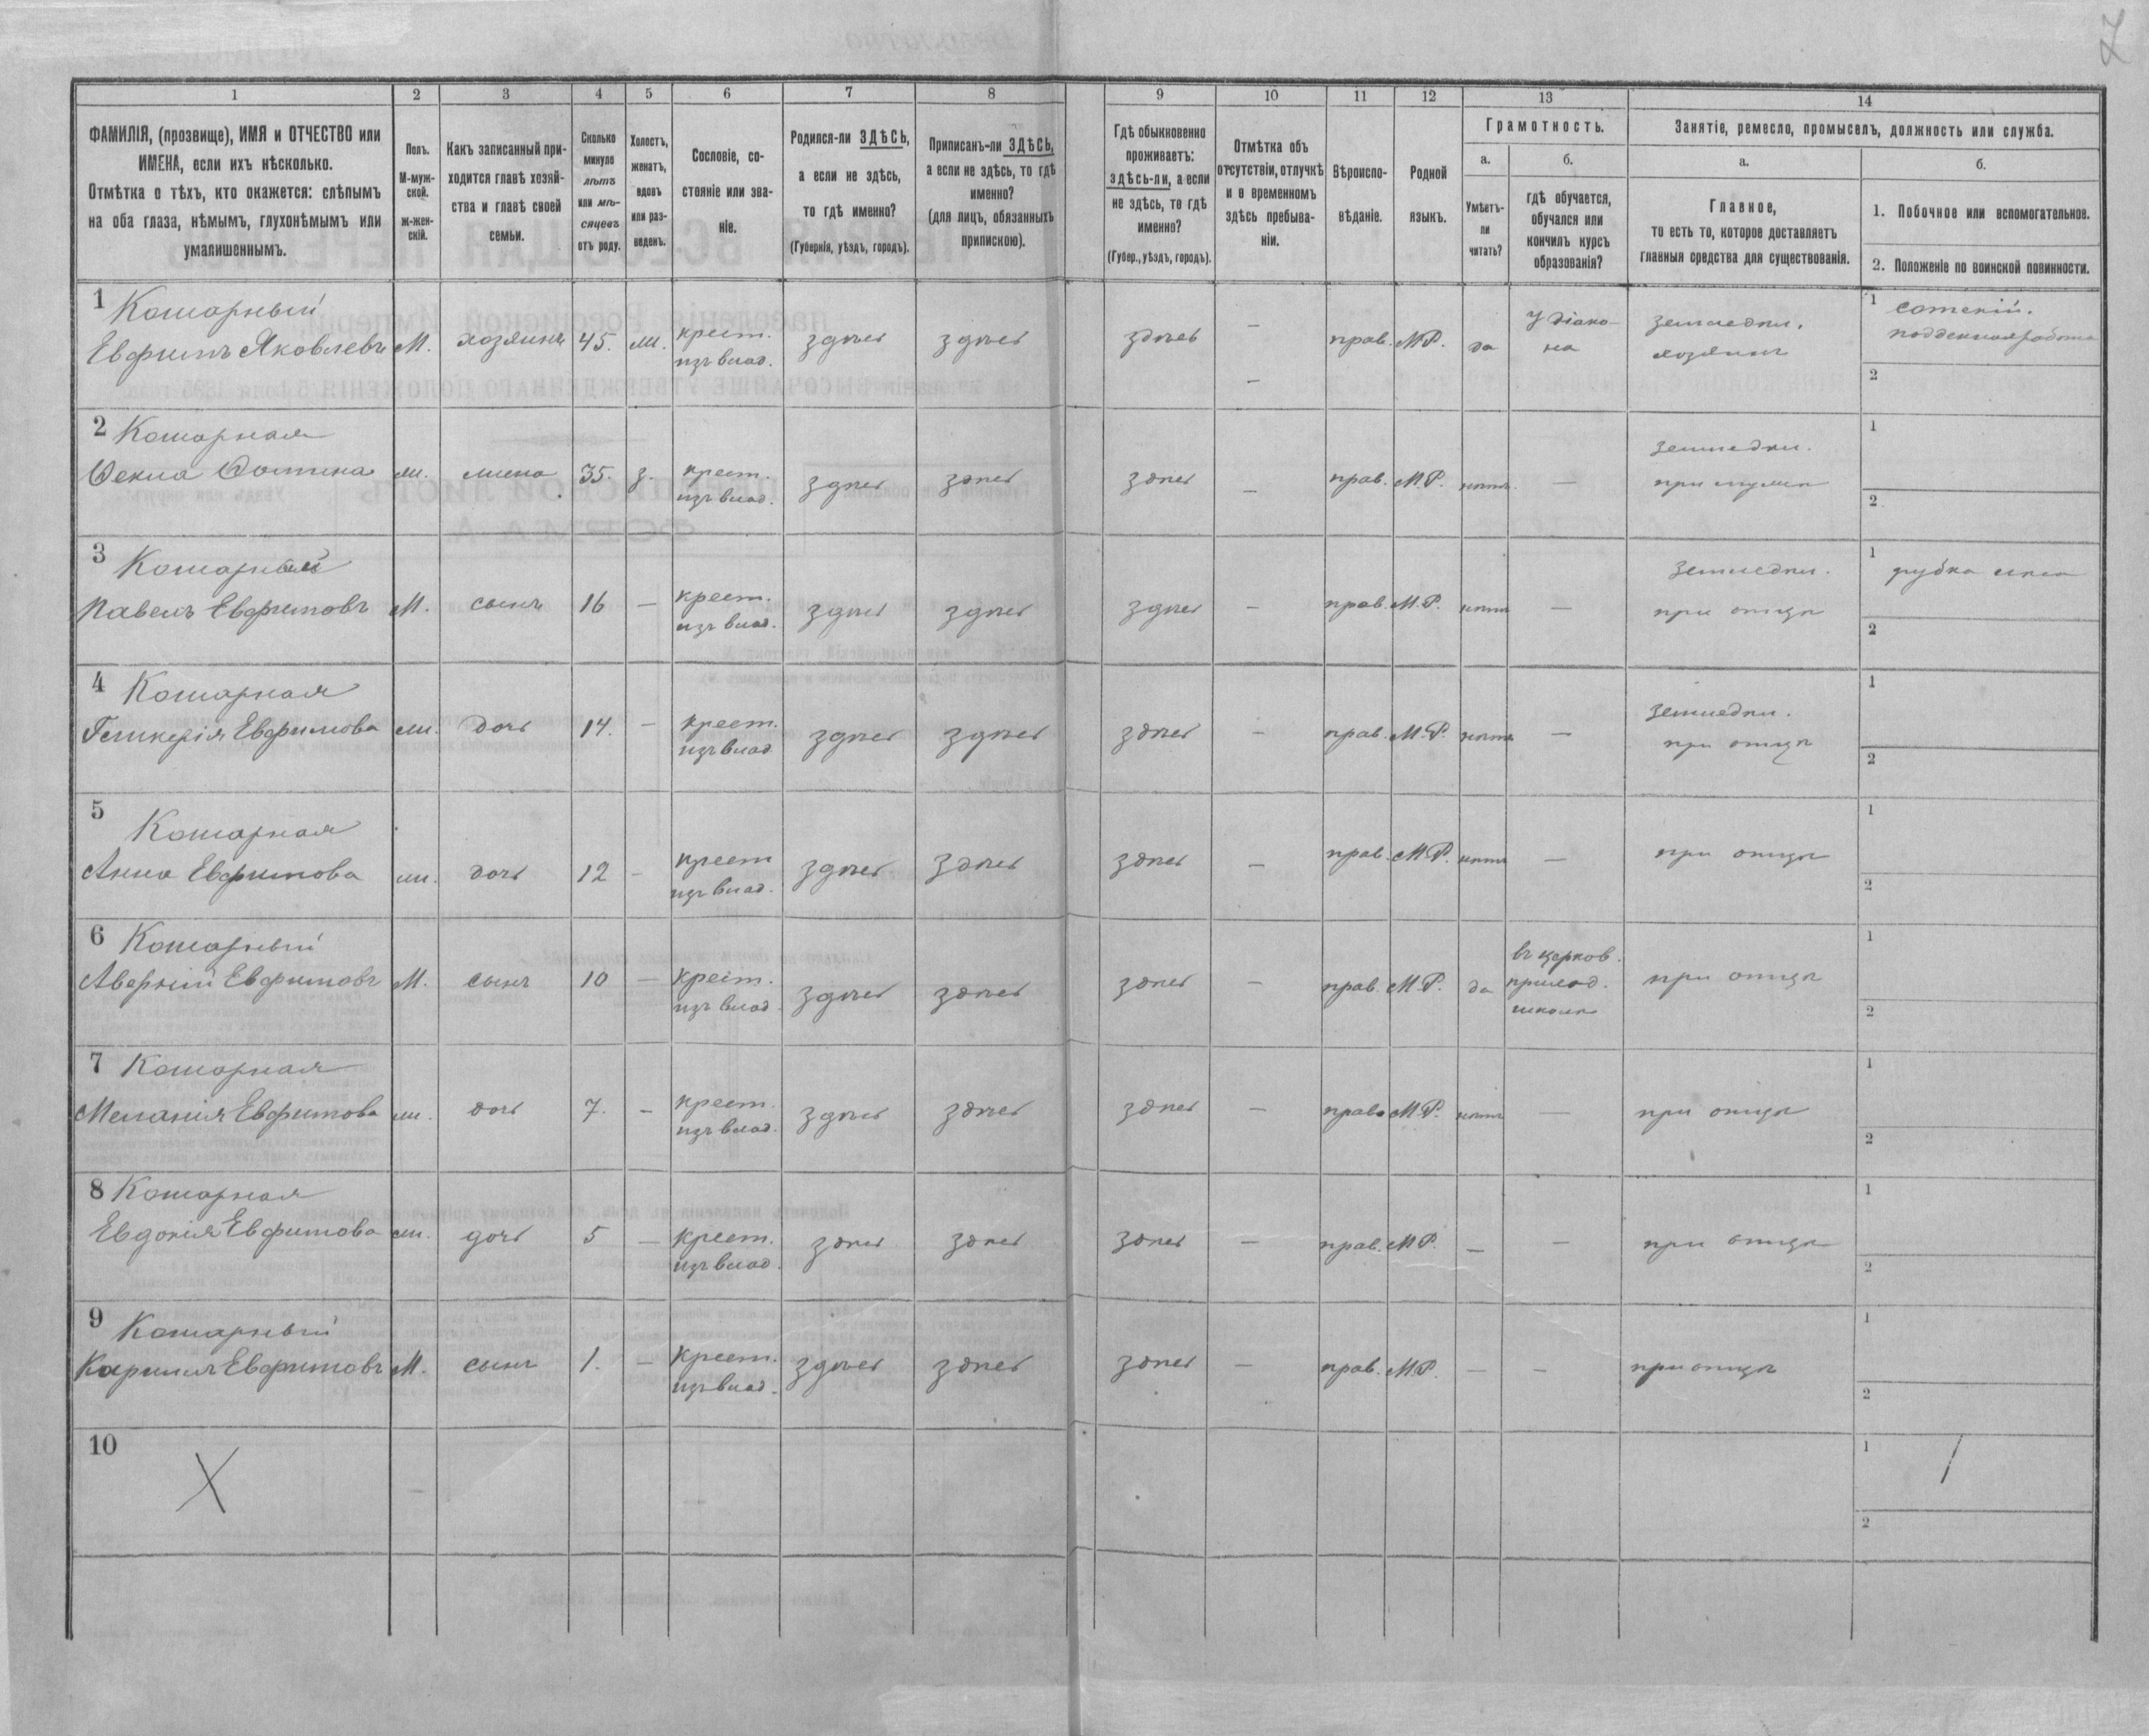 7
1
2
3
4
5
6
7
8
9
10
11
12
13
14
ФАМИЛІЯ, (прозвище), ИМЯ и ОТЧЕСТВО или
ИМЕНА, если ихъ нѣсколько.
Отмѣтка о тѣхъ, кто окажется: слѣпымъ
на оба глаза, нѣмымъ, глухонѣмымъ или
умалишеннымъ.
Полъ.
М-муж-
ской.
ж-жен-
скій.
Какъ записанный при-
ходится главѣ хозяй-
ства и главѣ своей
семьи.
Сколько
минуло
лѣтъ
или мѣ-
сяцевъ
отъ роду.
Холостъ,
женатъ,
вдовъ
или раз-
веденъ.
Сословіе, со-
стояніе или зва-
ніе.
Родился-ли ЗДѢСЬ,
а если не здѣсь,
то гдѣ именно?
(Губернія, уѣздъ, городъ).
Приписанъ-ли ЗДѢСЬ,
а если не здѣсь, то гдѣ
именно?
(для лицъ, обязанныхъ
припискою).
Гдѣ обыкновенно
проживаетъ:
здѣсь-ли, а если
не здѣсь, то гдѣ
именно?
(Губер., уѣздъ, городъ).
Отмѣтка объ
отсутствіи, отлучкѣ
и о временномъ
здѣсь пребыва-
ніи.
Вѣроиспо-
вѣданіе.
Родной
языкъ.
Грамотность.
а.
б.
Умѣетъ-
ли
читать?
гдѣ обучается,
обучался или
кончилъ курсъ
образованія?
Занятіе, ремесло, промыселъ, должность или служба.
а.
б.
Главное,
то есть то, которое доставляетъ
главныя средства для существованія.
1. Побочное или вспомогательное.
2. Положеніе по воинской повинности.
1 Комарный
Евфимъ Яковлевъ М. хозяинъ 45. ж. крест.
изъ влад. здѣсь здѣсь здѣсь — прав. М.Р. да У діако-
на земледѣл.
хозяинъ 1 сотскій.
поденная работа
— 2
2 Комарная
Фекла Фомина ж. жена 35. з. крест.
изъ влад. здѣсь здѣсь здѣсь — прав. М.Р. нѣтъ. — земледѣл.
при мужѣ 1
2
3 Комарный
Павелъ Евфимовъ М. сынъ 16 — крест.
изъ влад. здѣсь здѣсь здѣсь — прав. М.Р. нѣтъ — земледѣл.
при отцѣ 1 рубка лѣса
2
4 Комарная
Гликерія Евфимова ж. дочь 14. — крест.
изъ влад здѣсь здѣсь здѣсь — прав. М.Р. нѣтъ — земледѣл.
при отцѣ 1
2
5 Комарная
Анна Евфимова ж. дочь 12 — крест
изъ влад. здѣсь здѣсь здѣсь — прав. М.Р. нѣтъ — при отцѣ 1
2
6 Комарный
Аверкій Евфимовъ М. сынъ 10 — крест.
изъ влад. здѣсь здѣсь здѣсь — прав. М.Р. да въ церков.
приход.
школѣ при отцѣ 1
2
7 Комарная
Меланія Евфимова ж. дочь 7. — крест.
изъ влад. здѣсь здѣсь здѣсь — прав. М.Р. нѣтъ — при отцѣ 1
2
8 Комарная
Евдокія Евфимова ж. дочь 5 — крест.
изъ влад. здѣсь здѣсь здѣсь — прав. М.Р. — — при отцѣ 1
2
9 Комарный
Кирилъ Евфимовъ М. сынъ 1. — крест.
изъ влад. здѣсь здѣсь здѣсь — прав. М.Р. — — при отцѣ 1
2
10
1
2